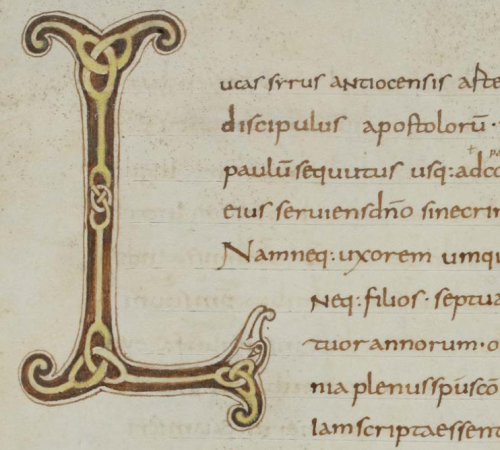 Lucas syrus antiocensis arte
discipulus apostolorū·
paulū sequutus usq: ad co
eius seruiens dn̄o sine crim
Nam neq: uxorem umqu
neq: filios· septua
tuor annorum· o
nia plenus sp̄u sc̄o
iam scripta essent